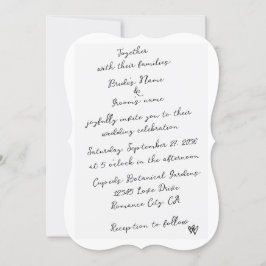 Together
with their families
Bride's Name
&
Groom's name
joyfully invite you to their
wedding celebration
Saturday, September 27, 2036
at 5 o'clock in the afternoon
Cupid's Botanical Gardens
12345 Love Drive
Romance City, CA
Reception to follow